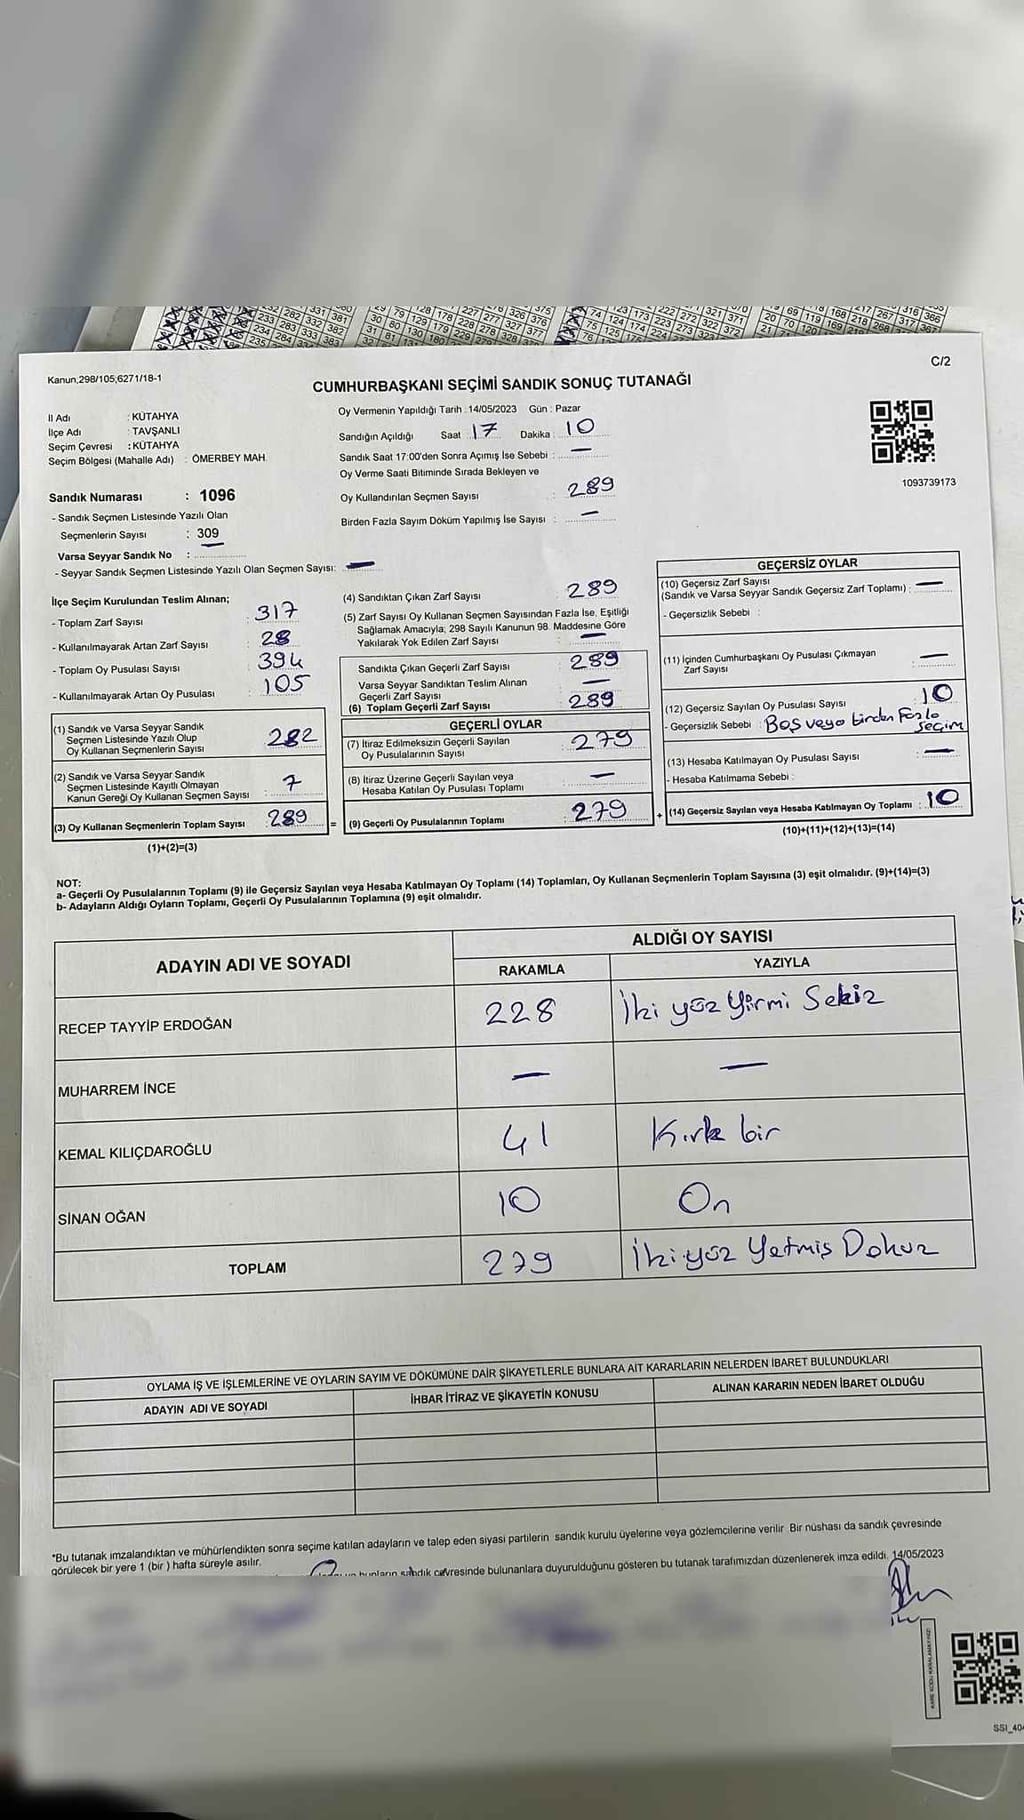 Kanun,298/105,6271/18-1
C/2
CUMHURBAŞKANI SEÇİMİ SANDIK SONUÇ TUTANAĞI
İl Adı : KÜTAHYA
İlçe Adı : TAVŞANLI
Seçim Çevresi : KÜTAHYA
Seçim Bölgesi (Mahalle Adı) : ÖMERBEY MAH.
Oy Vermenin Yapıldığı Tarih : 14/05/2023 Gün : Pazar
Sandığın Açıldığı Saat : 17 Dakika : 10
Sandık Saat 17:00'den Sonra Açımış İse Sebebi : —
Oy Verme Saati Bitiminde Sırada Bekleyen ve
Oy Kullandırılan Seçmen Sayısı : 289
Birden Fazla Sayım Döküm Yapılmış İse Sayısı : —
1093739173
Sandık Numarası : 1096
- Sandık Seçmen Listesinde Yazılı Olan
Seçmenlerin Sayısı : 309
Varsa Seyyar Sandık No : —
- Seyyar Sandık Seçmen Listesinde Yazılı Olan Seçmen Sayısı: —
İlçe Seçim Kurulundan Teslim Alınan;
- Toplam Zarf Sayısı : 317
- Kullanılmayarak Artan Zarf Sayısı : 28
- Toplam Oy Pusulası Sayısı : 394
- Kullanılmayarak Artan Oy Pusulası : 105
(1) Sandık ve Varsa Seyyar Sandık
Seçmen Listesinde Yazılı Olup
Oy Kullanan Seçmenlerin Sayısı : 282
(2) Sandık ve Varsa Seyyar Sandık
Seçmen Listesinde Kayıtlı Olmayan
Kanun Gereği Oy Kullanan Seçmen Sayısı : 7
(3) Oy Kullanan Seçmenlerin Toplam Sayısı : 289
(1)+(2)=(3)
(4) Sandıktan Çıkan Zarf Sayısı : 289
(5) Zarf Sayısı Oy Kullanan Seçmen Sayısından Fazla İse, Eşitliği
Sağlamak Amacıyla; 298 Sayılı Kanunun 98. Maddesine Göre
Yakılarak Yok Edilen Zarf Sayısı : —
Sandıkta Çıkan Geçerli Zarf Sayısı : 289
Varsa Seyyar Sandıktan Teslim Alınan
Geçerli Zarf Sayısı : —
(6) Toplam Geçerli Zarf Sayısı : 289
GEÇERLİ OYLAR
(7) İtiraz Edilmeksizin Geçerli Sayılan
Oy Pusulalarının Sayısı : 279
(8) İtiraz Üzerine Geçerli Sayılan veya
Hesaba Katılan Oy Pusulası Toplamı : —
= (9) Geçerli Oy Pusulalarının Toplamı : 279
GEÇERSİZ OYLAR
(10) Geçersiz Zarf Sayısı
(Sandık ve Varsa Seyyar Sandık Geçersiz Zarf Toplamı) : —
- Geçersizlik Sebebi :
(11) İçinden Cumhurbaşkanı Oy Pusulası Çıkmayan
Zarf Sayısı : —
(12) Geçersiz Sayılan Oy Pusulası Sayısı : 10
- Geçersizlik Sebebi : Boş veya birden Fazla
seçim
(13) Hesaba Katılmayan Oy Pusulası Sayısı : —
- Hesaba Katılmama Sebebi :
+ (14) Geçersiz Sayılan veya Hesaba Katılmayan Oy Toplamı : 10
(10)+(11)+(12)+(13)=(14)
NOT:
a- Geçerli Oy Pusulalarının Toplamı (9) ile Geçersiz Sayılan veya Hesaba Katılmayan Oy Toplamı (14) Toplamları, Oy Kullanan Seçmenlerin Toplam Sayısına (3) eşit olmalıdır. (9)+(14)=(3)
b- Adayların Aldığı Oyların Toplamı, Geçerli Oy Pusulalarının Toplamına (9) eşit olmalıdır.
ADAYIN ADI VE SOYADI
ALDIĞI OY SAYISI
RAKAMLA YAZIYLA
RECEP TAYYİP ERDOĞAN 228 İki yüz Yirmi Sekiz
MUHARREM İNCE — —
KEMAL KILIÇDAROĞLU 41 Kırk bir
SİNAN OĞAN 10 On
TOPLAM 279 İki yüz Yetmiş Dokuz
OYLAMA İŞ VE İŞLEMLERİNE VE OYLARIN SAYIM VE DÖKÜMÜNE DAİR ŞİKAYETLERLE BUNLARA AİT KARARLARIN NELERDEN İBARET BULUNDUKLARI
ADAYIN ADI VE SOYADI İHBAR İTİRAZ VE ŞİKAYETİN KONUSU ALINAN KARARIN NEDEN İBARET OLDUĞU
*Bu tutanak imzalandıktan ve mühürlendikten sonra seçime katılan adayların ve talep eden siyasi partilerin sandık kurulu üyelerine veya gözlemcilerine verilir. Bir nüshası da sandık çevresinde
görülecek bir yere 1 (bir ) hafta süreyle asılır.
bunların sandık çevresinde bulunanlara duyurulduğunu gösteren bu tutanak tarafımızdan düzenlenerek imza edildi. 14/05/2023
SSI_40